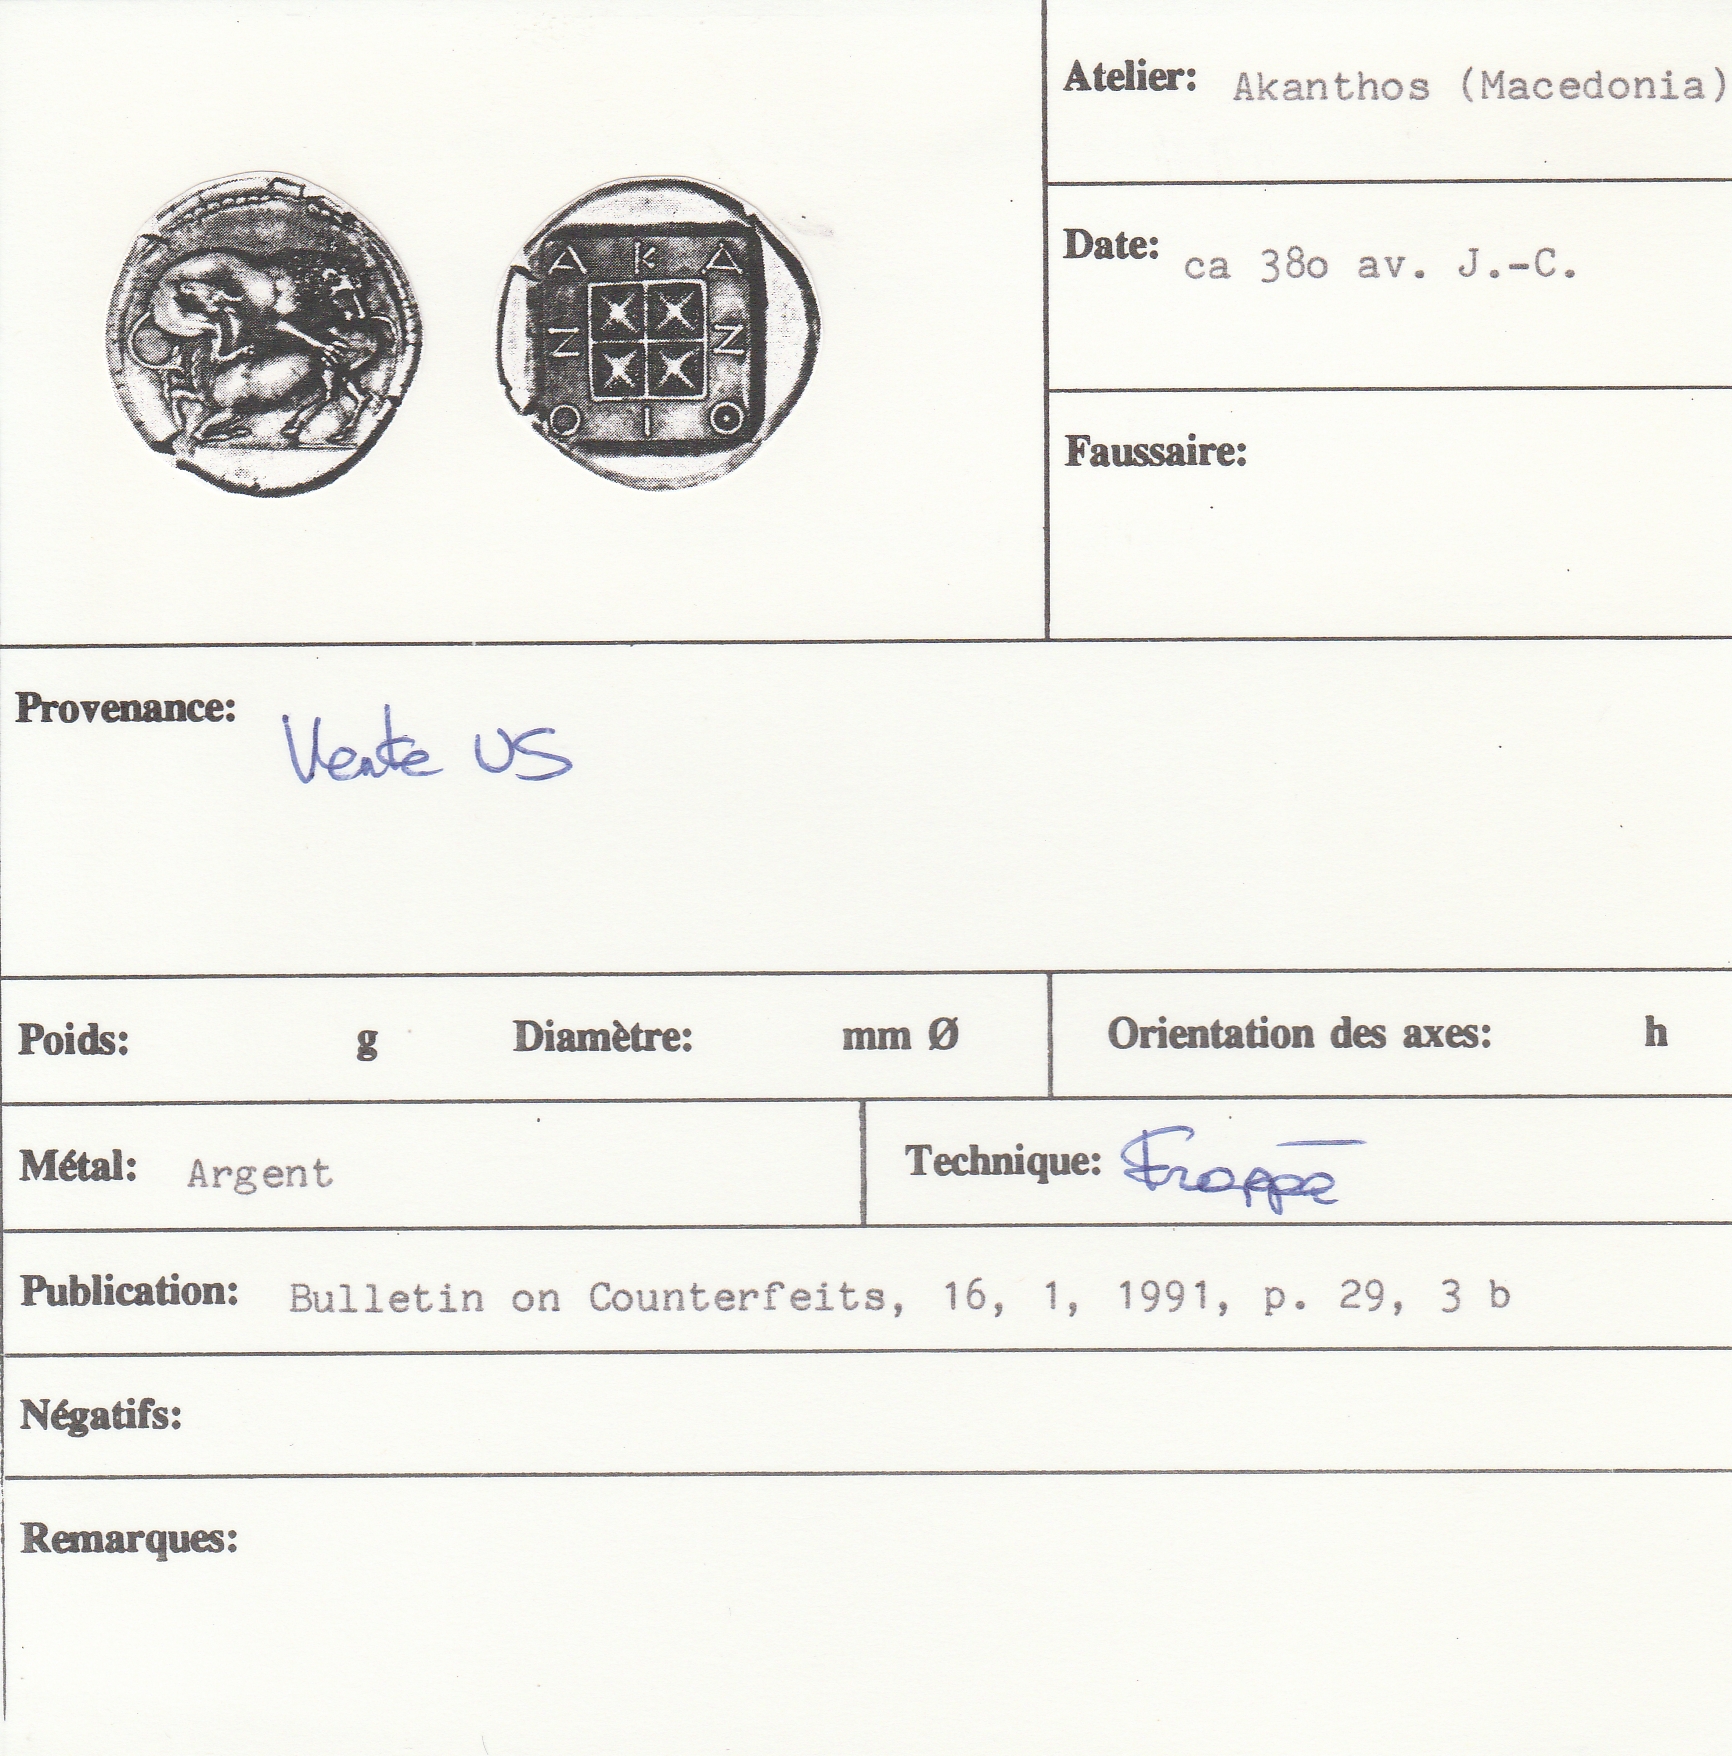 Α Κ Α
Ν Ν
Ο Ι Θ
Atelier: Akanthos (Macedonia)
Date: ca 38o av. J.-C.
Faussaire:
Provenance: Vente US
Poids: g Diamètre: mm Ø Orientation des axes: h
Métal: Argent Technique: Frappé
Publication: Bulletin on Counterfeits, 16, 1, 1991, p. 29, 3 b
Négatifs:
Remarques: